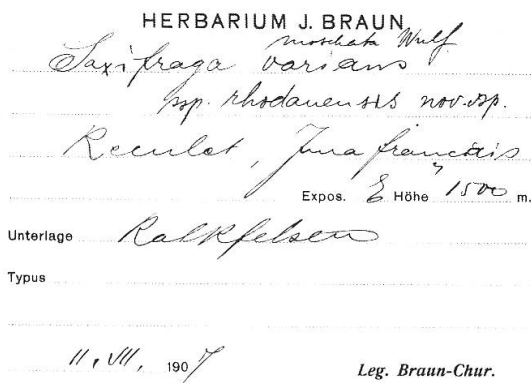 HERBARIUM J. BRAUN
moschata Wulf
Saxifraga varians
ssp. rhodanensis nov. ssp.
Reculet, Jura français
Expos. E Höhe 1500 m.
Unterlage Kalkfelsen
Typus
11. VII. 1907
Leg. Braun-Chur.